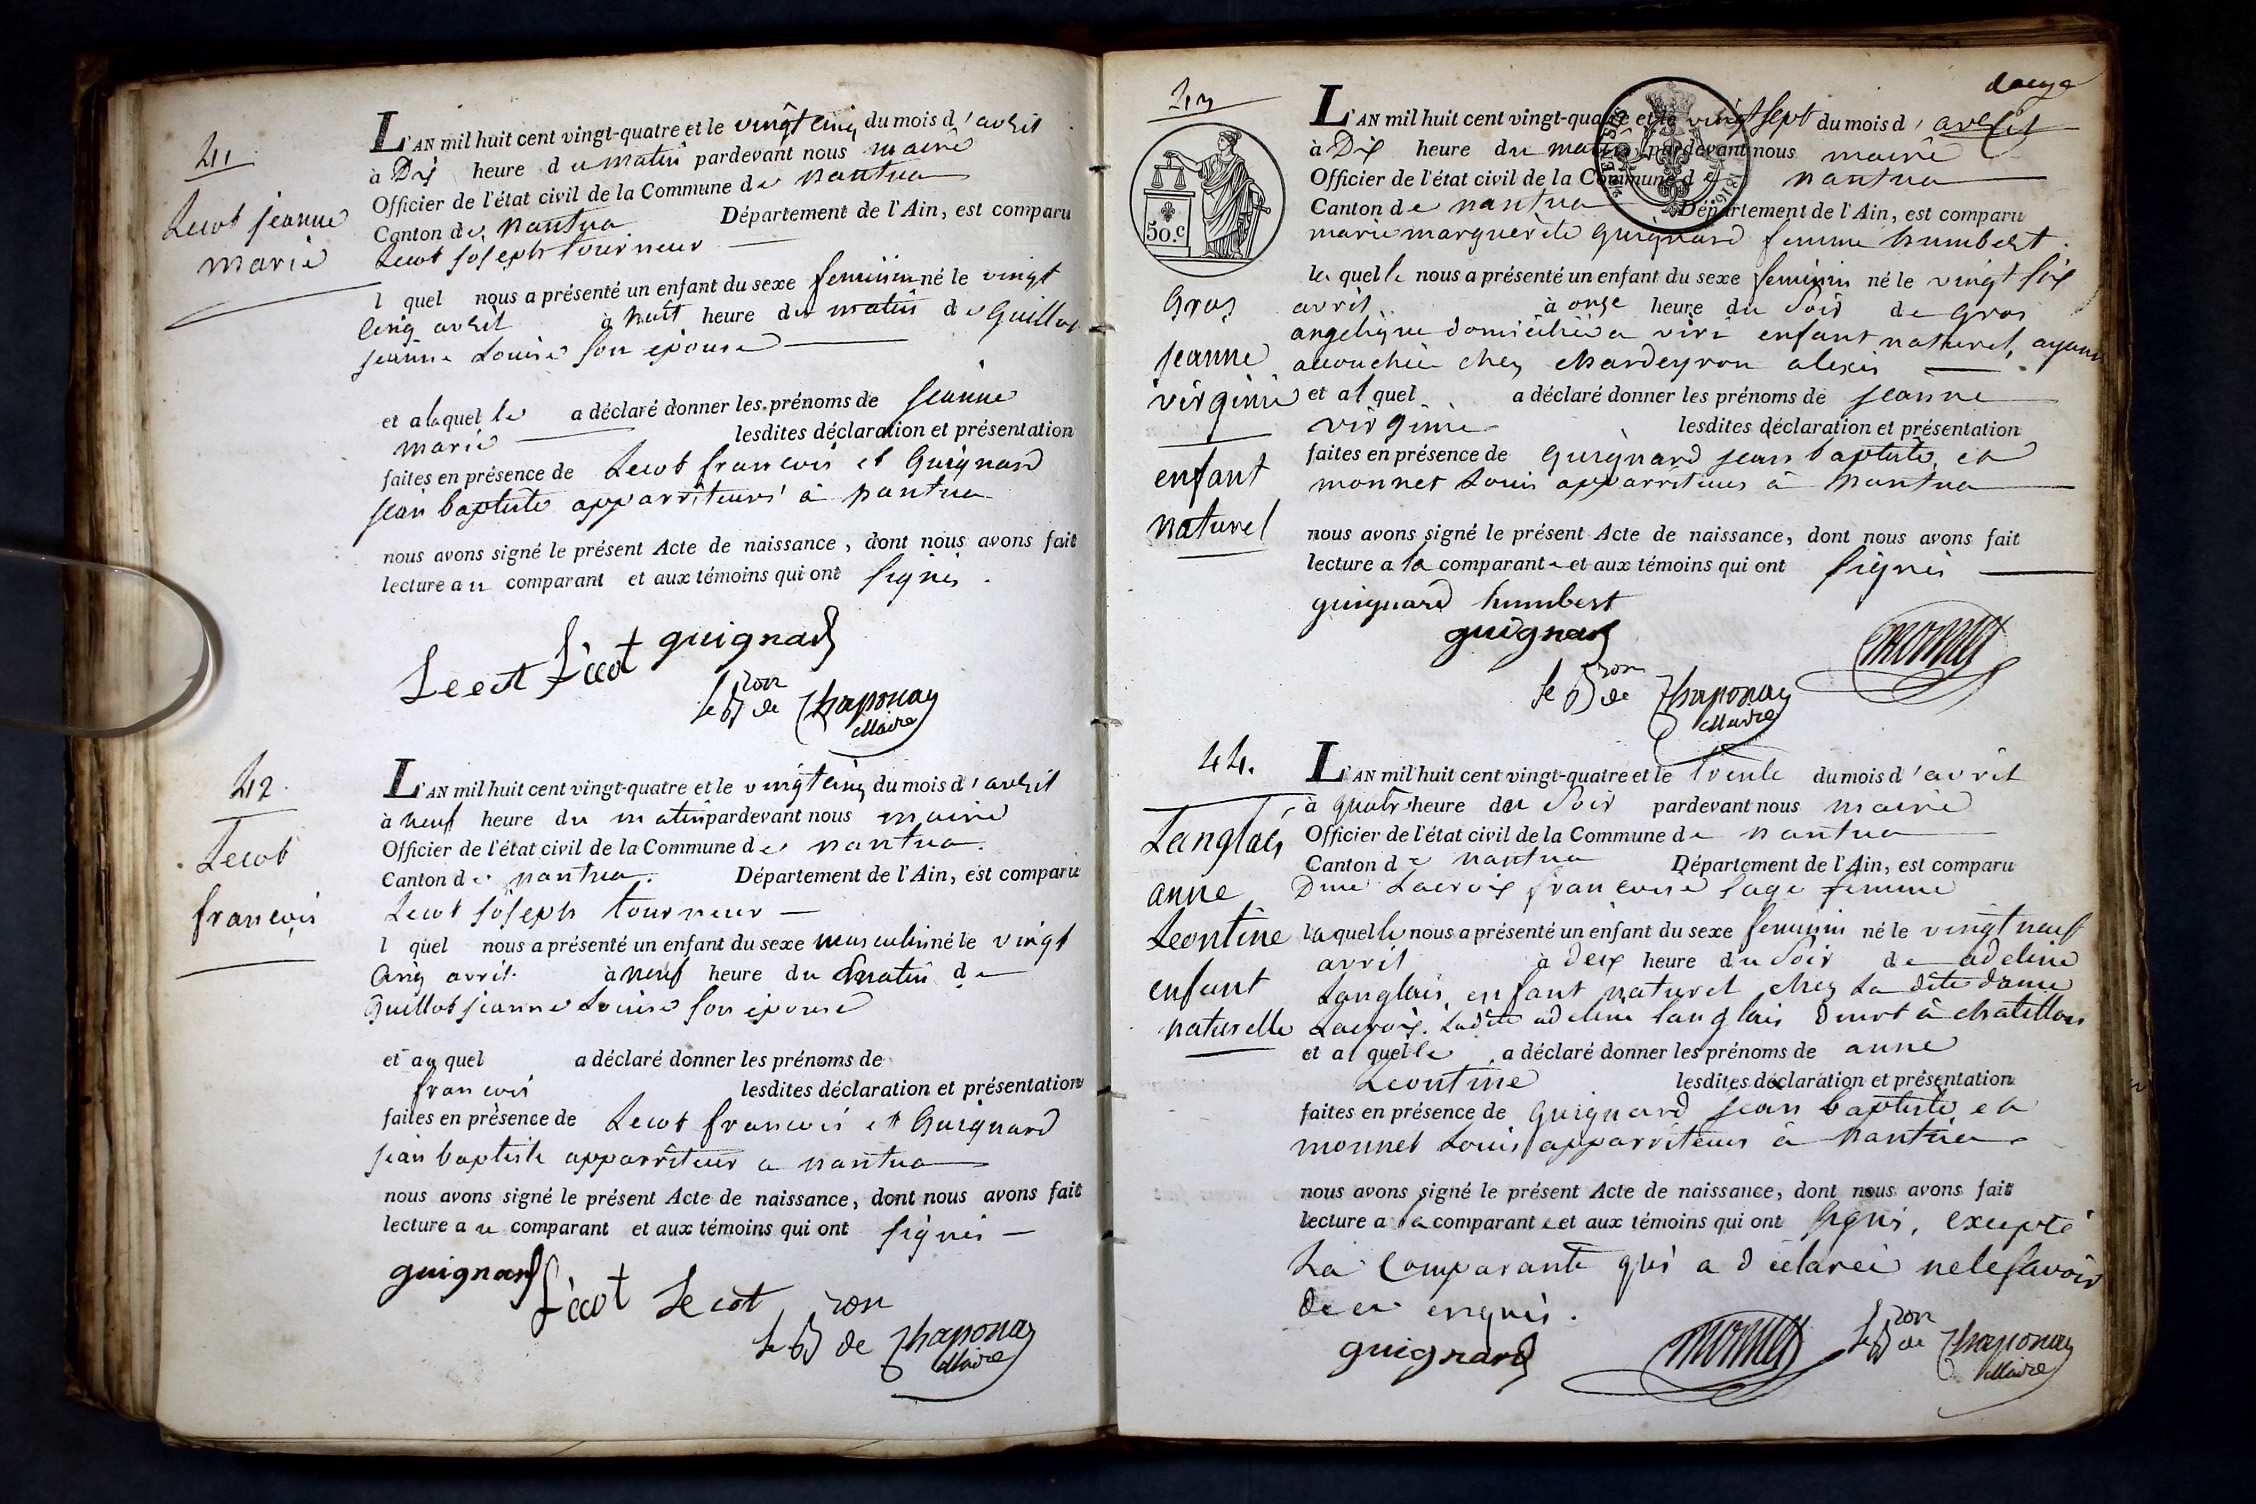 41
Lecot jeanne
marie
L'AN mil huit cent vingt-quatre et le vingt cinq du mois d'avril
à Dix heure du matin pardevant nous maire
Officier de l'état civil de la Commune de nantua
Canton de nantua Département de l'Ain, est comparu
Lecot joseph tourneur
l quel nous a présenté un enfant du sexe feminin né le vingt
cinq avril à huit heure du matin de Guillot
jeanne Louise son épouse
et alaquelle a déclaré donner les prénoms de jeanne
marie lesdites déclaration et présentation
faites en présence de Lecot francois et Guignard
jean baptiste apparriteurs à nantua
nous avons signé le présent Acte de naissance, dont nous avons fait
lecture au comparant et aux témoins qui ont signés.
Lecot Lecot guignard
le Bron de Chaponay
Maire
42
Lecot
francois
L'AN mil huit cent vingt-quatre et le vingt cinq du mois d'avril
à neuf heure du matin pardevant nous maire
Officier de l'état civil de la Commune de nantua.
Canton de nantua. Département de l'Ain, est comparu
Lecot joseph tourneur
l quel nous a présenté un enfant du sexe masculin né le vingt
cinq avril à neuf heure du matin de
Guillot jeanne Louise son épouse
et au quel a déclaré donner les prénoms de
francois lesdites déclaration et présentation
faites en présence de Lecot francois et Guignard
jean baptiste apparriteur a nantua
nous avons signé le présent Acte de naissance, dont nous avons fait
lecture au comparant et aux témoins qui ont signés
guignard Lecot Lecot
le Bron de Chaponay
Maire
43
50.c
1816
Gros
jeanne
virginie
enfant
naturel
L'AN mil huit cent vingt-quatre et le vingt sept du mois d'avril
à Dix heure du matin pardevant nous maire
Officier de l'état civil de la Commune de nantua
Canton de nantua Département de l'Ain, est comparu
marie marguerite guignard femme humbert.
la quelle nous a présenté un enfant du sexe feminin né le vingt six
avril à onze heure du soir de gros
angelique domiciliée a viri enfant naturel, ayant
accouchée chez Mardeyron alexis
et al quel a déclaré donner les prénoms de jeanne
virginie lesdites déclaration et présentation
faites en présence de guignard jean baptiste et
monnet Louis apparriteurs à nantua
nous avons signé le présent Acte de naissance, dont nous avons fait
lecture a la comparante et aux témoins qui ont signés
guignard humbert
guignard
monnet
le Bron de Chaponay
Maire
44.
Langlais
anne
Leontine
enfant
naturelle
L'AN mil huit cent vingt-quatre et le trente du mois d'avril
à quatre heure du soir pardevant nous maire
Officier de l'état civil de la Commune de nantua
Canton de nantua Département de l'Ain, est comparu
Dme Lacroix francoise sage femme
laquelle nous a présenté un enfant du sexe feminin né le vingt neuf
avril à deux heure du soir de adeline
Langlais, enfant naturel chez la dite dame
Lacroix. Ladite adeline langlais à chatillon
et al quelle a déclaré donner les prénoms de anne
Leontine lesdites déclaration et présentation
faites en présence de guignard jean baptiste et
monnet Louis apparriteurs à nantua
nous avons signé le présent Acte de naissance, dont nous avons fait
lecture a la comparante et aux témoins qui ont signés, excepté
La comparante qui a déclarée ne le savoir
de ce enquis.
guignard monnet le Bron de Chaponay
Maire